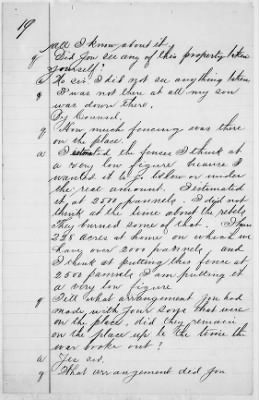 19
all I know about it
q Did you see any of this property taken
yourself?
a No sir I did not see anything taken
q I was not there at all my son
was down there.
By Counsel.
q How much fencing was there
on the place.
a I estimated the fences I think at
a very low figure because I
wanted it to go below or under
the real amount. I estimated
it at 2500 pannels. I did not
think at the time about the rebels
They burned some of that.
acres at home on which we
have over 200 pannels, and
I think at putting this fence at
2500 pannels I am putting it
a very low figure
q Tell what arrangement you had
made with your sons that were
on the place, did they remain
on the place up to the time the
war broke out?
a Yes sir.
q What arrangement did you